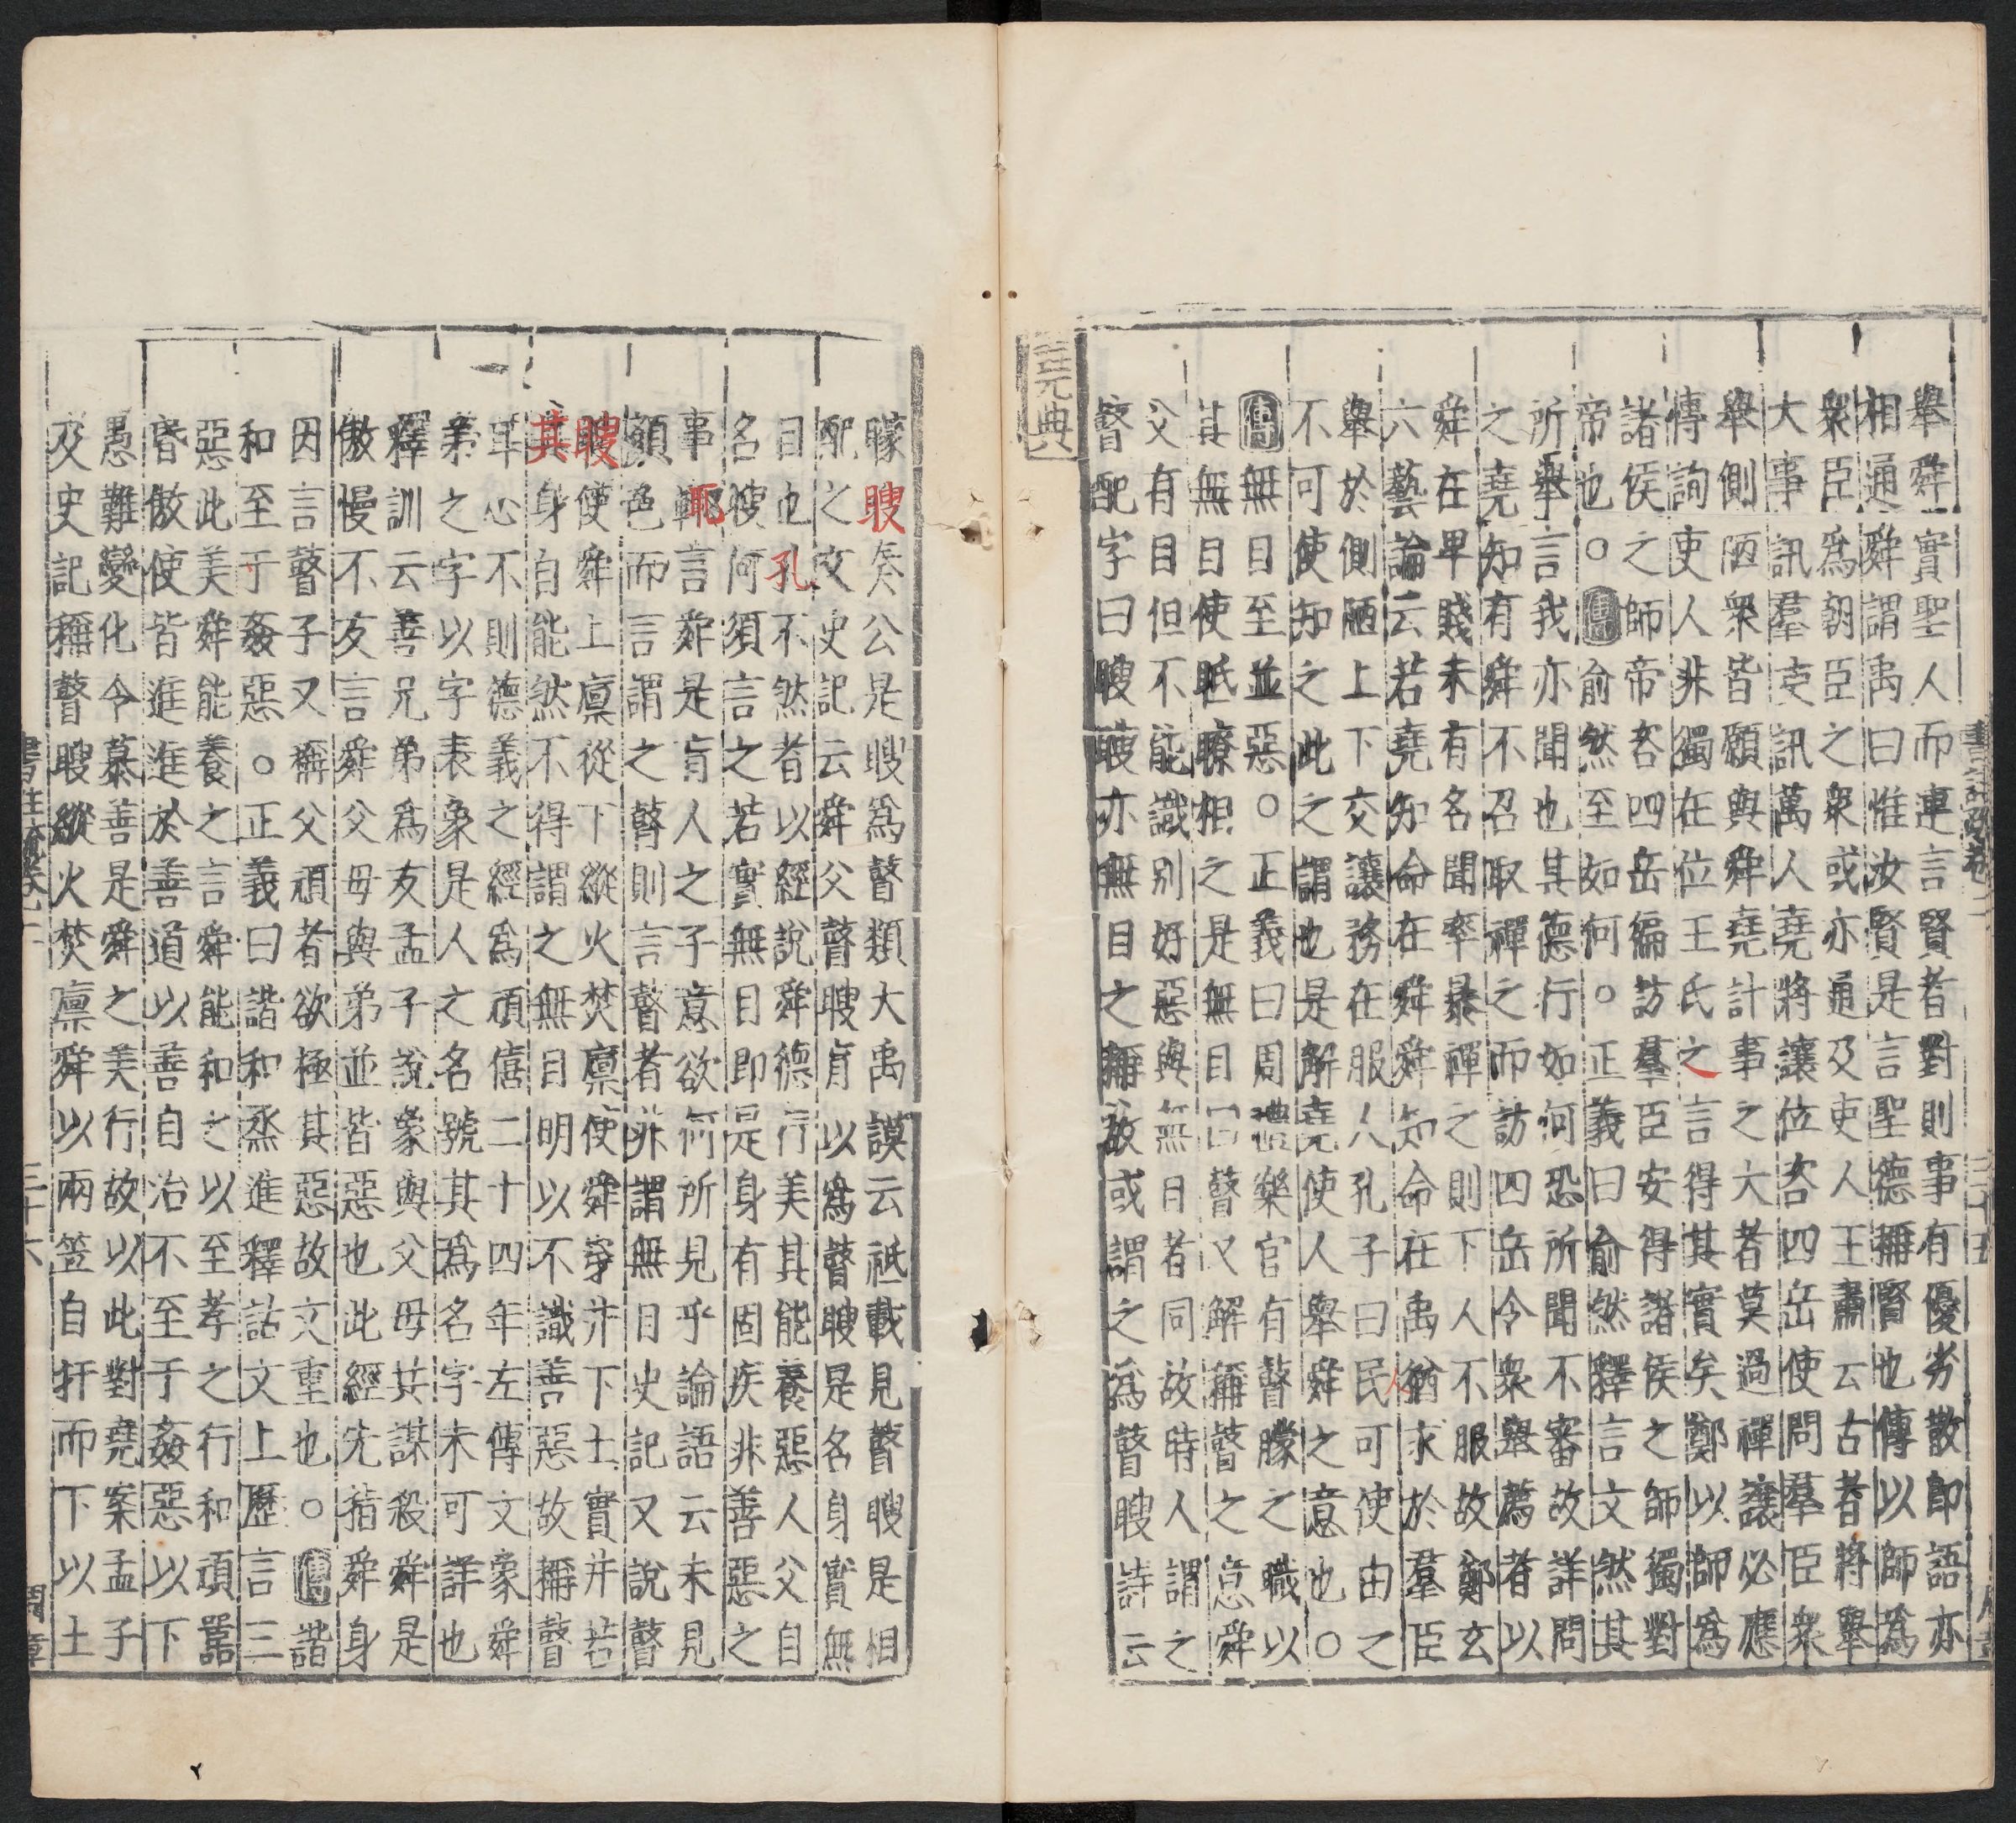 舉舜實聖人而連言賢者對則事有優劣散即語亦
相通舜謂禹曰惟汝賢是言聖德稱賢也傳以師爲
衆臣爲朝臣之衆或亦通及吏人王肅云古者將舉
大事訊羣吏訊萬人堯將讓位咨四岳使問羣臣衆
舉側陋衆皆願與舜堯計事之大者莫過禪讓必應
傳詢吏人非獨在位王氏之言得其實矣鄭以師爲
諸侯之師帝咨四岳徧訪羣臣安得諸侯之師獨對
帝也○傳俞然至如何○正義曰俞然釋言文然其
所舉言我亦聞也其德行如何恐所聞不審故詳問
之堯知有舜不召取禪之而訪四岳令衆舉薦者以
舜在卑賤未有名聞率暴禪之則下人不服故鄭玄
六藝論云若堯知命在舜舜知命在禹猶求於羣臣
舉於側陋上下交讓務在服人孔子曰民可使由之
不可使知之此之謂也是解堯使人舉舜之意也○
傳無目至並惡○正義曰周禮樂官有瞽矇之職以
其無目使眡瞭相之是無目曰瞽又解稱瞽之意舜
父有目但不能識別好惡與無目者同故時人謂之
瞽配字曰瞍瞍亦無目之稱故或謂之爲瞽瞍詩云
堯典
矇瞍奏公是瞍爲瞽類大禹謨云祗載見瞽瞍是相
配之文史記云舜父瞽瞍盲以爲瞽瞍是名身實無
目也孔不然者以經說舜德行美其能養惡人父自
名瞍何須言之若實無目即是身有固疾非善惡之
事輒言舜是盲人之子意欲何所見乎論語云未見
顏色而言謂之瞽則言瞽者非謂無目史記又說瞽
瞍使舜上廩從下縱火焚廩使舜穿井下土實井若
其身自能然不得謂之無目明以不識善惡故稱瞽
耳心不則德義之經爲頑僖二十四年左傳文象舜
弟之字以字表象是人之名號其爲名字未可詳也
釋訓云善兄弟爲友孟子說象與父母共謀殺舜是
傲慢不友言舜父母與弟並皆惡也此經先指舜身
因言瞽子又稱父頑者欲極其惡故文重也○傳諧
和至于姦惡○正義曰諧和烝進釋詁文上歷言三
惡此美舜能養之言舜能和之以至孝之行和頑嚚
昏傲使皆進進於善道以善自治不至于姦惡以下
愚難變化令慕善是舜之美行故以此對堯案孟子
及史記稱瞽瞍縱火焚廩舜以兩笠自扞而下以土
三十六